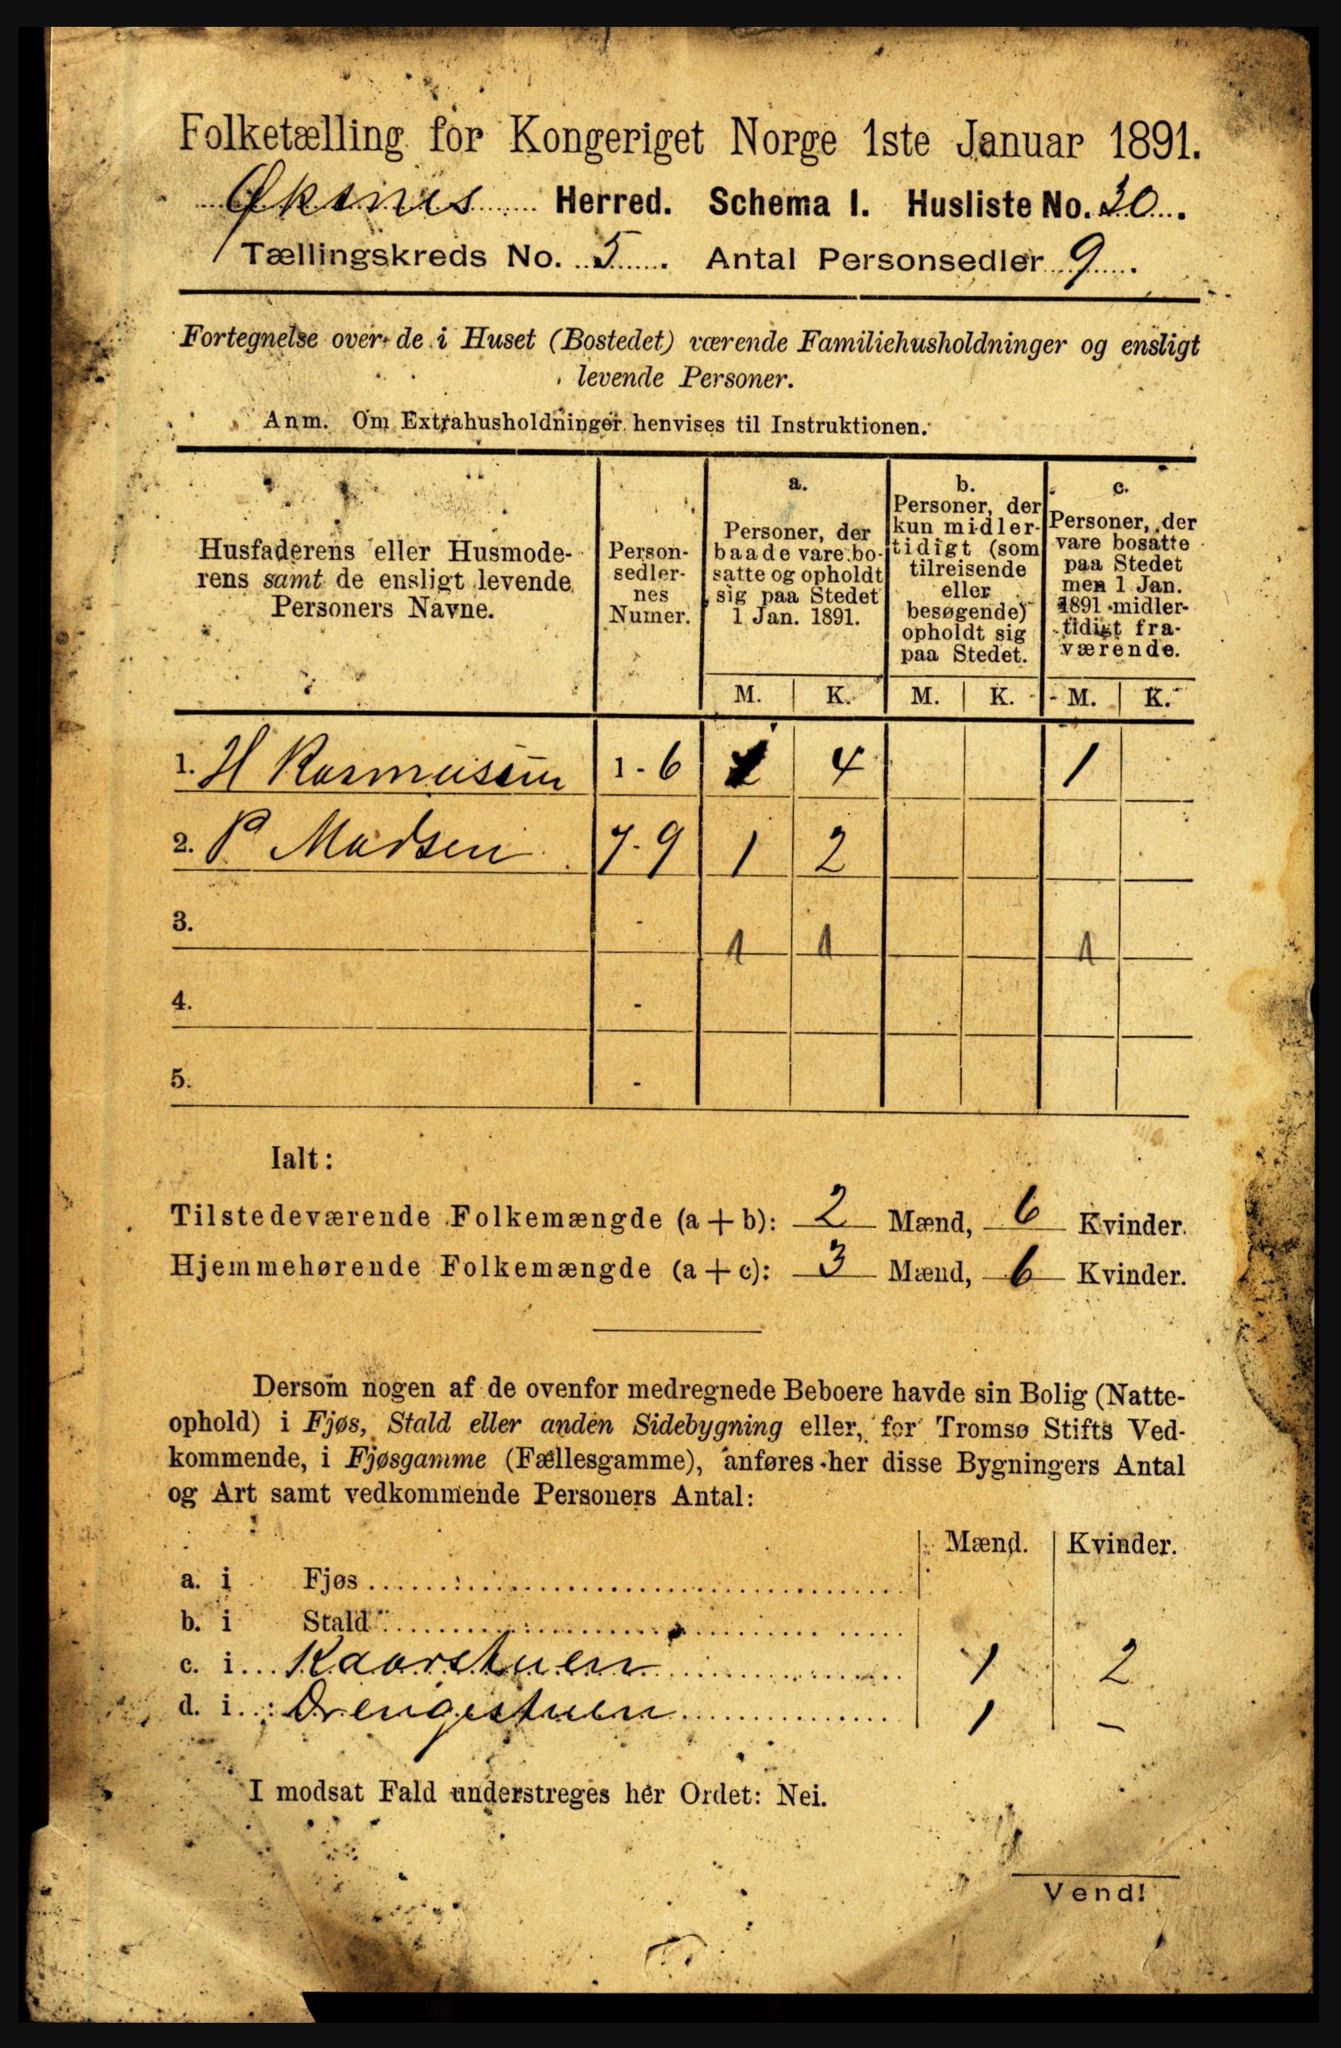 Folketælling for Kongeriget Norge 1ste Januar 1891.
Øksnes Herred. Schema I. Husliste No. 30.
Tællingskreds No. 5. Antal Personsedler 9.
Fortegnelse over de i Huset (Bostedet) værende Familiehusholdninger og ensligt
levende Personer.
Anm. Om Extrahusholdninger henvises til Instruktionen.
Husfaderens eller Husmode-
rens samt de ensligt levende
Personers Navne.
Person-
sedler-
nes
Numer.
a.
Personer, der
baade vare bo-
satte og opholdt
sig paa Stedet
1 Jan. 1891.
b.
Personer, der
kun midler-
tidigt (som
tilreisende
eller
besøgende)
opholdt sig
paa Stedet.
c.
Personer, der
vare bosatte
paa Stedet
men 1 Jan.
1891 midler-
tidigt fra-
værende.
M. K. M. K. M. K.
1. H Rasmussen 1 - 6 4 1
2. P Madsen 7 - 9 1 2
3. - 1 1 1
4. -
5. -
Ialt:
Tilstedeværende Folkemængde (a + b): 2 Mænd, 6 Kvinder.
Hjemmehørende Folkemængde (a + c): 3 Mænd, 6 Kvinder.
Dersom nogen af de ovenfor medregnede Beboere havde sin Bolig (Natte-
ophold) i Fjøs, Stald eller anden Sidebygning eller, for Tromsø Stifts Ved-
kommende, i Fjøsgamme (Fællesgamme), anføres her disse Bygningers Antal
og Art samt vedkommende Personers Antal:
Mænd. Kvinder.
a. i Fjøs
b. i Stald
c. i Kaarstuen 1 2
d. i Drengestuen 1 -
I modsat Fald understreges her Ordet: Nei.
Vend!